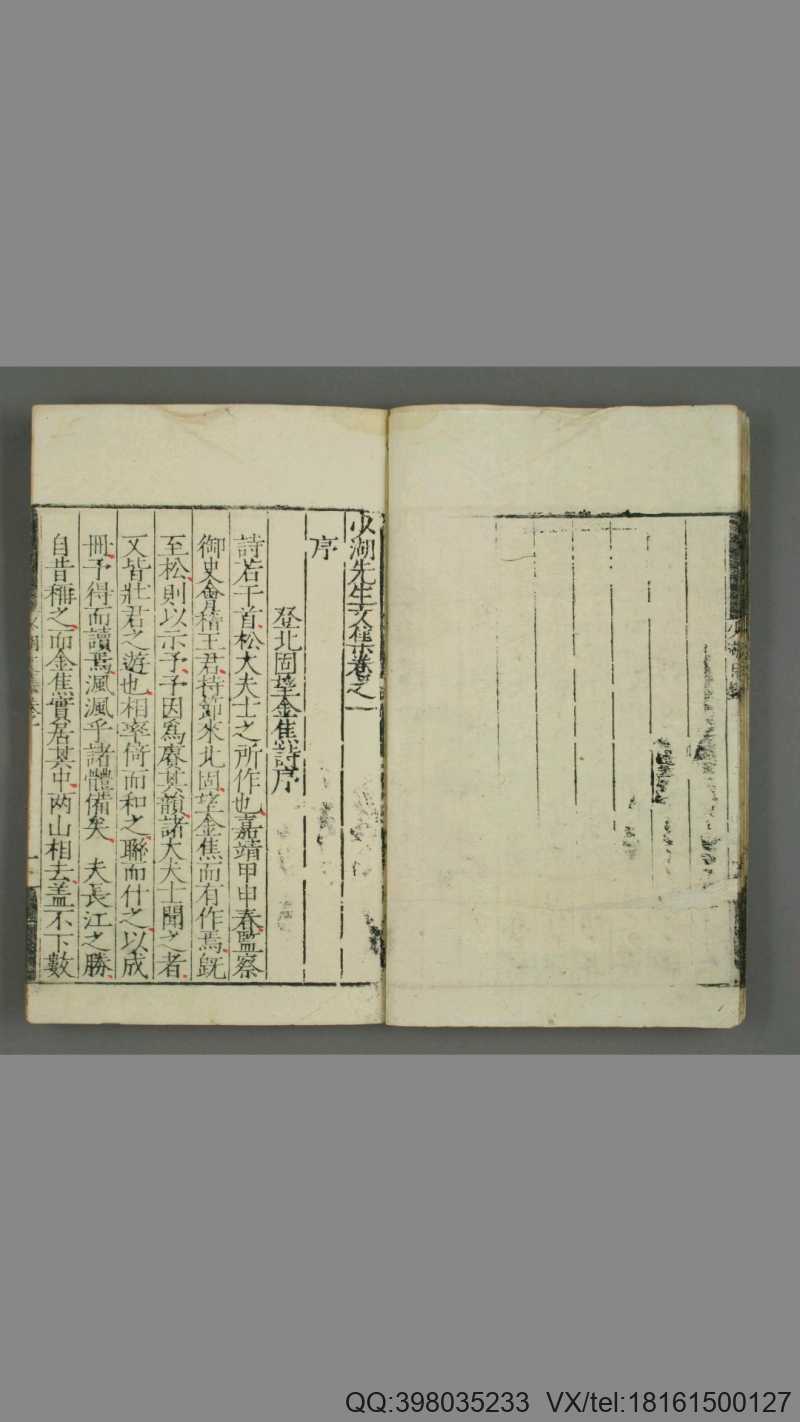 少湖先生文集卷之一
序
登北固望金焦詩序
詩若干首松大夫士之所作也嘉靖甲申春監察
御史會稽王君持節來北固望金焦而有作焉既
至松則以示予予因爲賡其韻諸大夫士聞之者
又皆壯君之遊也相率倚而和之聯而什之以成
冊予得而讀焉渢渢乎諸體備矣 夫長江之勝
自昔稱之而金焦實居其中两山相去盖不下數
QQ:398035233 VX/tel:18161500127